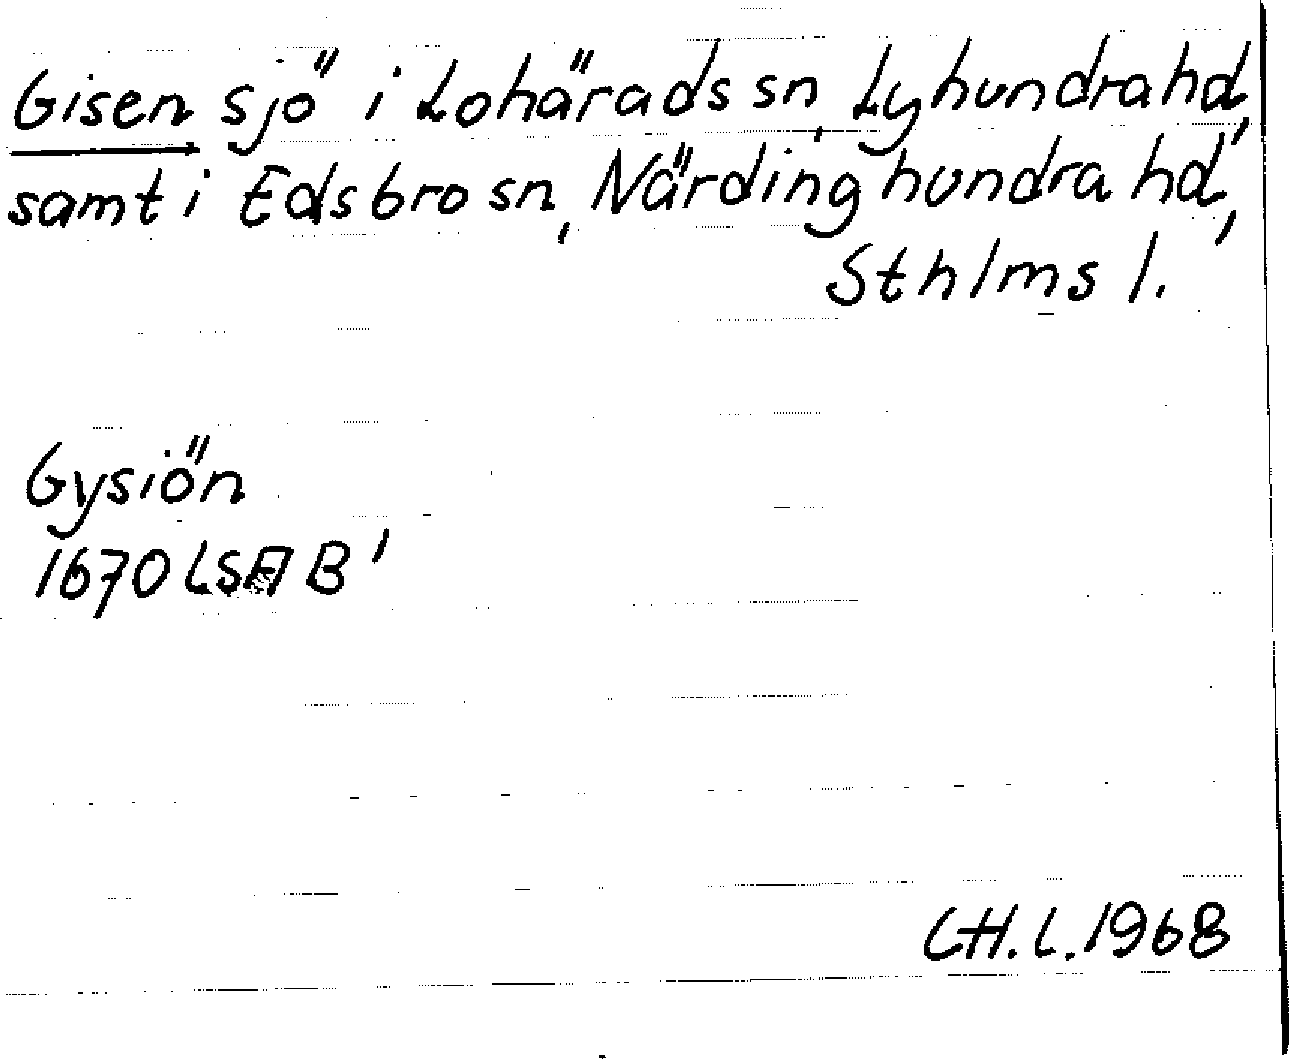 Gisen sjö i Lohärads sn, Lyhundra hd,
samt i Edsbro sn, Närdinghundra hd,
Sthlms l.
Gysiön
1670 LSA B'
CH.L. 1968